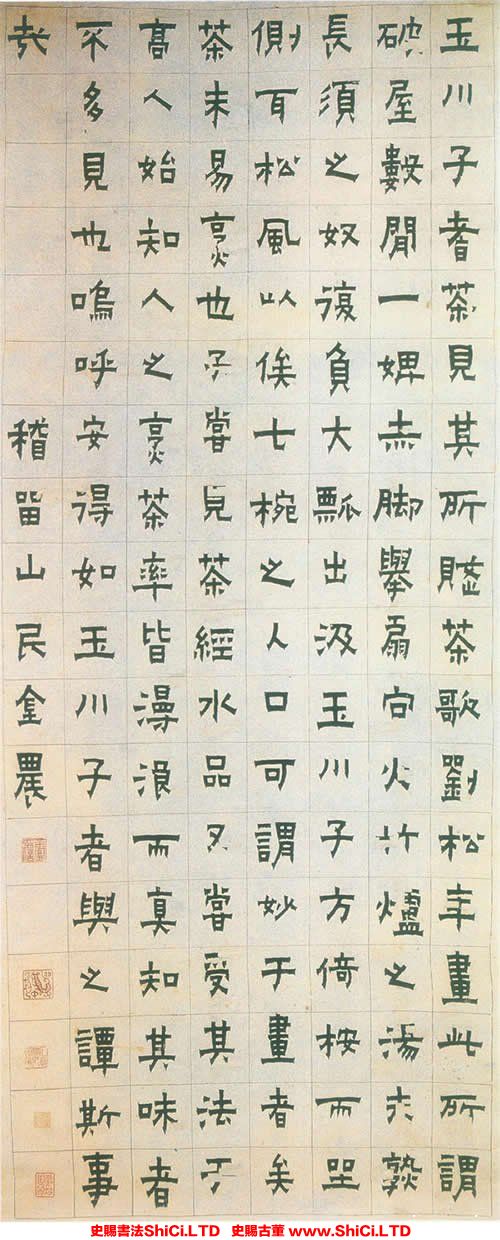 玉川子耆茶見其所賦茶歌劉松年畫此所謂
破屋數間一婢赤脚舉扇向火竹爐之湯未熟
長須之奴復負大瓢出汲玉川子方倚桉而坐
側耳松風以俟七椀之入口可謂妙于畫者矣
茶未易烹也予嘗見茶經水品又嘗受其法于
高人始知人之烹茶率皆漫浪而真知其味者
不多見也嗚呼安得如玉川子者與之譚斯事
哉 稽畱山民金農
史賜書法ShiCi.LTD 史賜古董 www.ShiCi.LTD